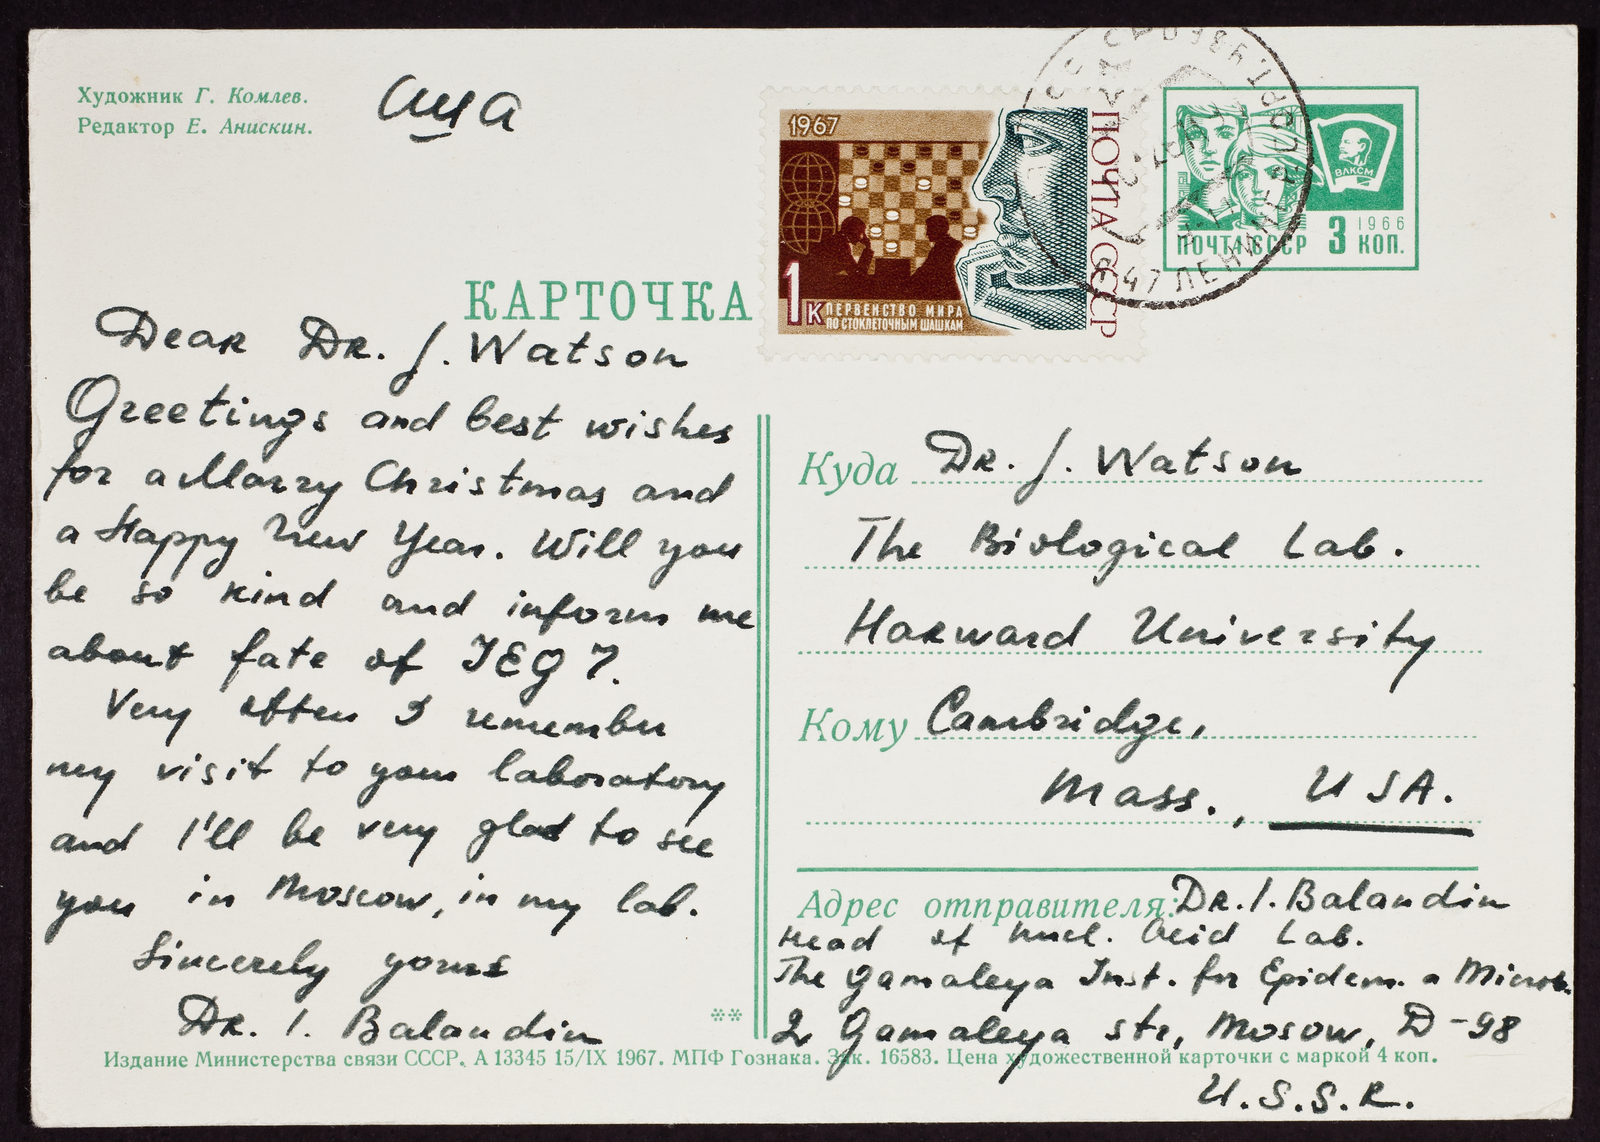 Художник Г. Комлев.
Редактор Е. Анискин.
США
1967
1К
ПЕРВЕНСТВО МИРА
ПО СТОКЛЕТОЧНЫМ ШАШКАМ
ПОЧТА СССР
ВЛКСМ
1966
ПОЧТА СССР 3 КОП.
КАРТОЧКА
Dear Dr. J. Watson
Greetings and best wishes
for a Marry Christmas and
a Happy New Year. Will you
be so kind and inform me
about fate of IEG 7.
Very often I remember
my visit to your laboratory
and I'll be very glad to see
you in Moscow, in my lab.
Sincerely yours
Dr. I. Balandin
**
Куда Dr. J. Watson
The Biological Lab.
Harward University
Кому Cambridge,
Mass., USA.
Адрес отправителя: Dr. I. Balandin
Head of Nucl. Acid Lab.
The Gamaleya Inst. for Epidem. a Microb.
2 Gamaleya str, Moscow, D-98
U.S.S.R.
Издание Министерства связи СССР. А 13345 15/IX 1967. МПФ Гознака. Зак. 16583. Цена художественной карточки с маркой 4 коп.